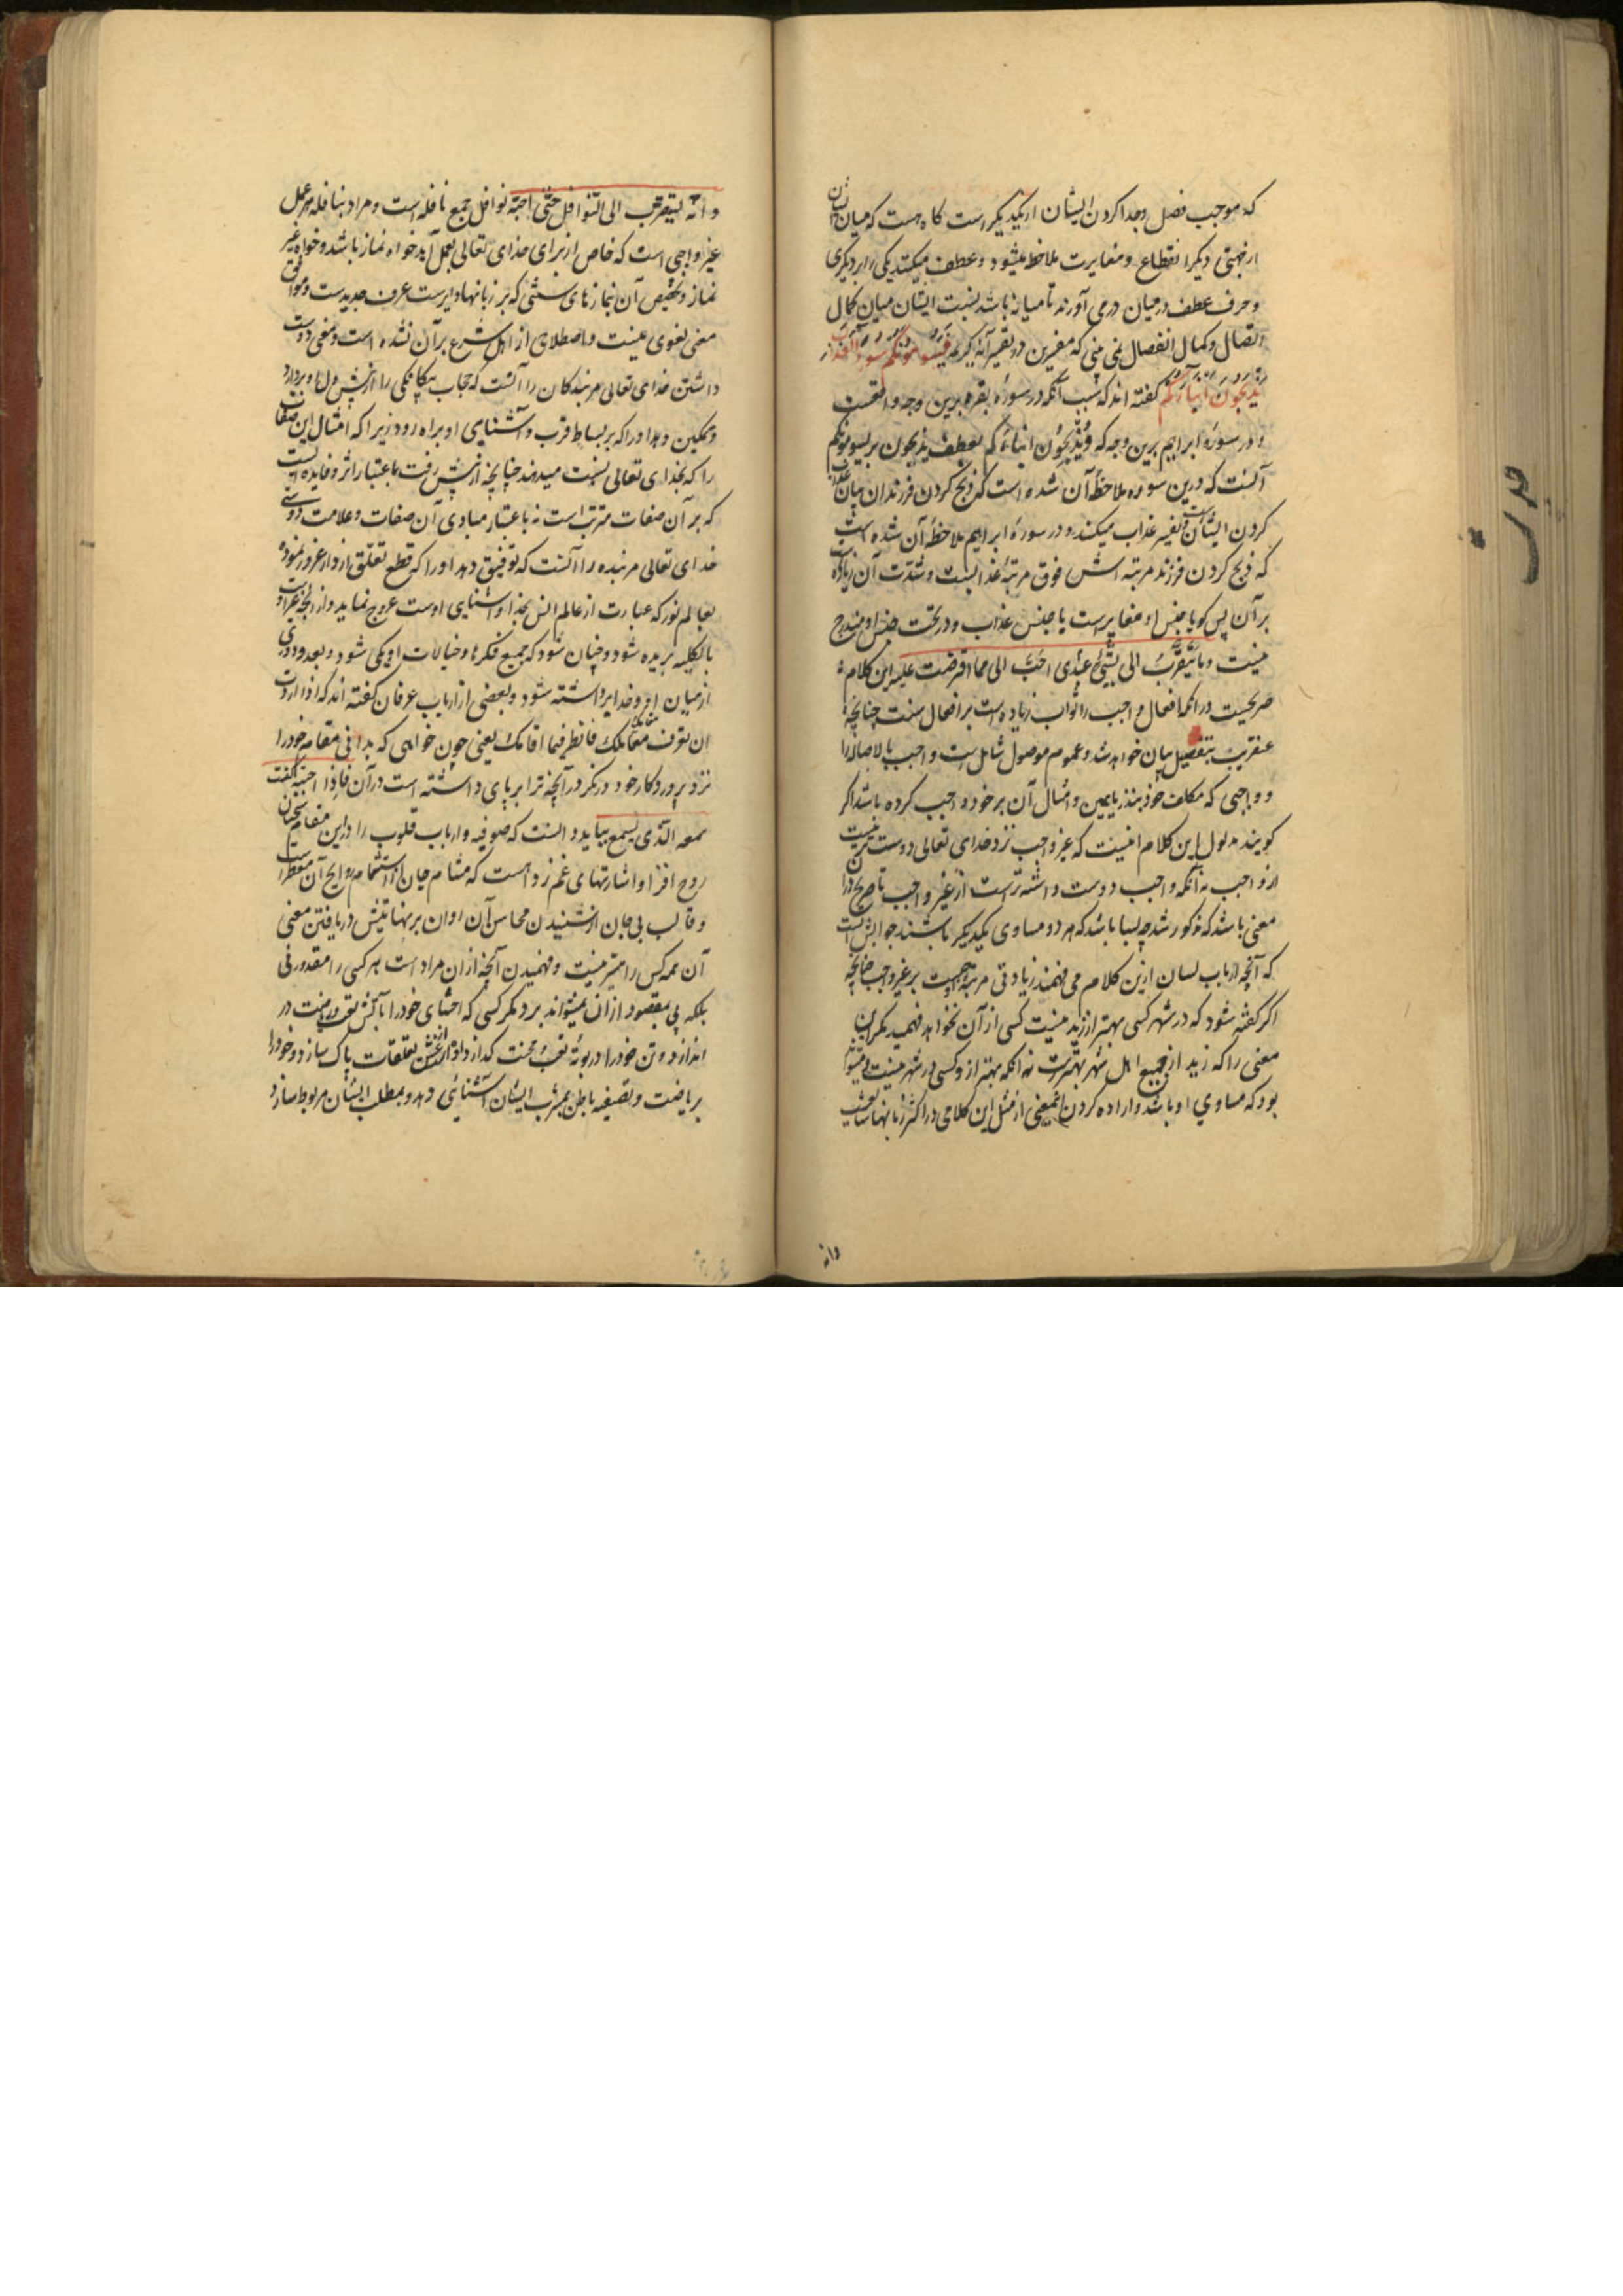 که موجب فصل و جدا کردن ایشان از یکدیگر است کاه هست که میان ایشان
از جهتی دیکر انقطاع و مغایرت ملاحظه میشود و عطف میکنند یکی را بر دیکری
و حرف عطف در میان در می آورند تا میانه باشد نسبت ایشان میان کمال
اتصال و کمال انفصال نمی بینی که مفسرین در تفسیر آیه کریمه یَسُومُونَکُم سُوءَ العَذاب
یُذَبِّحُونَ اَبْناءَکُم کفته اند که سبب آنکه در سورۀ بقره برین وجه واقعست
و در سورۀ ابراهیم برین وجه که وَیُذَبِّحُونَ ابناءَکم بعطف یذبحون بر یسومونکم
آنست که درین سوره ملاحظۀ آن شده است که ذبح کردن فرزندان بیان عذاب
کردن ایشانست و تفسیر عذاب میکند و در سورۀ ابراهیم ملاحظۀ آن شده است
که ذبح کردن فرزند مرتبه اش فوق مرتبۀ عذابست و شدّت آن زیاده است
بر آن پس کویا جنس او مغایرست با جنس عذاب و در تحت جنس او مندرج
نیست و ما یَتَقَرَّبُ الی بشیء عبدی احَبَّ الی مما افرضت علیه این کلام
صریحست در آنکه افعال واجب را ثواب زیاده است بر افعال سنت چنانچه
عنقریب بتفصیل بیان خواهد شد و عموم موصول شاملست واجب بالاصاله را
و واجبی که مکلف خود بنذر یا یمین و امثال آن بر خود واجب کرده باشد اکر
کویند مدلول این کلام اینست که غیر واجب نزد خدای تعالی دوست تر نیست
از واجب نه آنکه واجب دوست داشته ترست از غیر واجب تا صریح در آن
معنی باشد که مذکور شد چه بسا باشد که هر دو مساوی یکدیکر باشند جوابش آنست
که آنچه ارباب لسان ازین کلام می فهمند زیادتی مرتبۀ واجبست بر غیر واجب چنانچه
اکر کفته شود که در شهر کسی بهتر از زید نیست کسی از آن نخواهد فهمید مکر این
معنی را که زید از جمیع اهل شهر بهترست نه آنکه بهتر ازو کسی در شهر نیست و میشود
بود که مساوی او باشد و اراده کردن اینمعنی از مثل این کلامی در اکثر زبانها شایع
وانه
حدیث
و انّه لیتقرّب الی النّوافل حتّی احبّه نوافل جمع نافله است و مراد بنافله هر عمل
غیر واجبی است که خاص از برای خدای تعالی بعمل آید خواه نماز باشد و خواه غیر
نماز و تخصیص آن بنمازهای سنتی که بر زبانها دایرست عرف جدیدست و موافق
معنی لغوی نیست و اصطلاحی از اهل شرع بر آن نشده است و معنی دوست
داشتن خدای تعالی مر بندکان را آنست که حجاب بیکانکی را از پیش دلها بردارد
و تمکین دهد او را که بر بساط قرب و آشنایی او براه رود زیرا که امثال این صفات
را که بخدای تعالی نسبت میدهند چنانچه از پیش رفت باعتبار اثر و فایده ایست
که بر آن صفات مترتب است نه باعتبار مبادی آن صفات و علامت دوستی
خدای تعالی مر بنده را آنست که توفیق دهد او را که قطع تعلّق از دار غرور نموده
بعالم نور که عبارت از عالم انس بخدا و آشنایی اوست عروج نماید و از آنچه غیر اوست
بالکلیه بریده شود و چنان شود که جمیع فکرها و خیالات او یکی شود و بعد و دوری
از میان او و خدا برداشته شود و بعضی از ارباب عرفان کفته اند که اذا اردت
ان تعرف مقامک فانظر فیما اقامک یعنی چون خواهی که بدانی مقام خود را
نزد پروردکار خود در نکر در آنچه ترا بر پای داشته است در آن فاِذا احببته کنت
سمعه الّذی یسمع بباید دانست که صوفیه و ارباب قلوب را در این مقام سخنان
روح افزا و اشارتهای غم زدا هست که مشام جان از استشمام روایح آن معطر است
و قالب بی جان از شنیدن محاسن آن
آن همه کس را میسر نیست و فهمیدن آنچه از آن مراد است هر کسی را مقدور نی
بلکه پی بمقصود از آن نمیتواند برد مکر کسی که احشای خود را بآتش تعب ریاضت در
اندازد و تن خود را در بوتۀ تعب و محنت کدازد و او را از غش تعلقات پاک سازد و خود را
بریاضت و تصفیه باطن بمشرب ایشان آشنائی دهد و بمطلب ایشان مربوط سازد